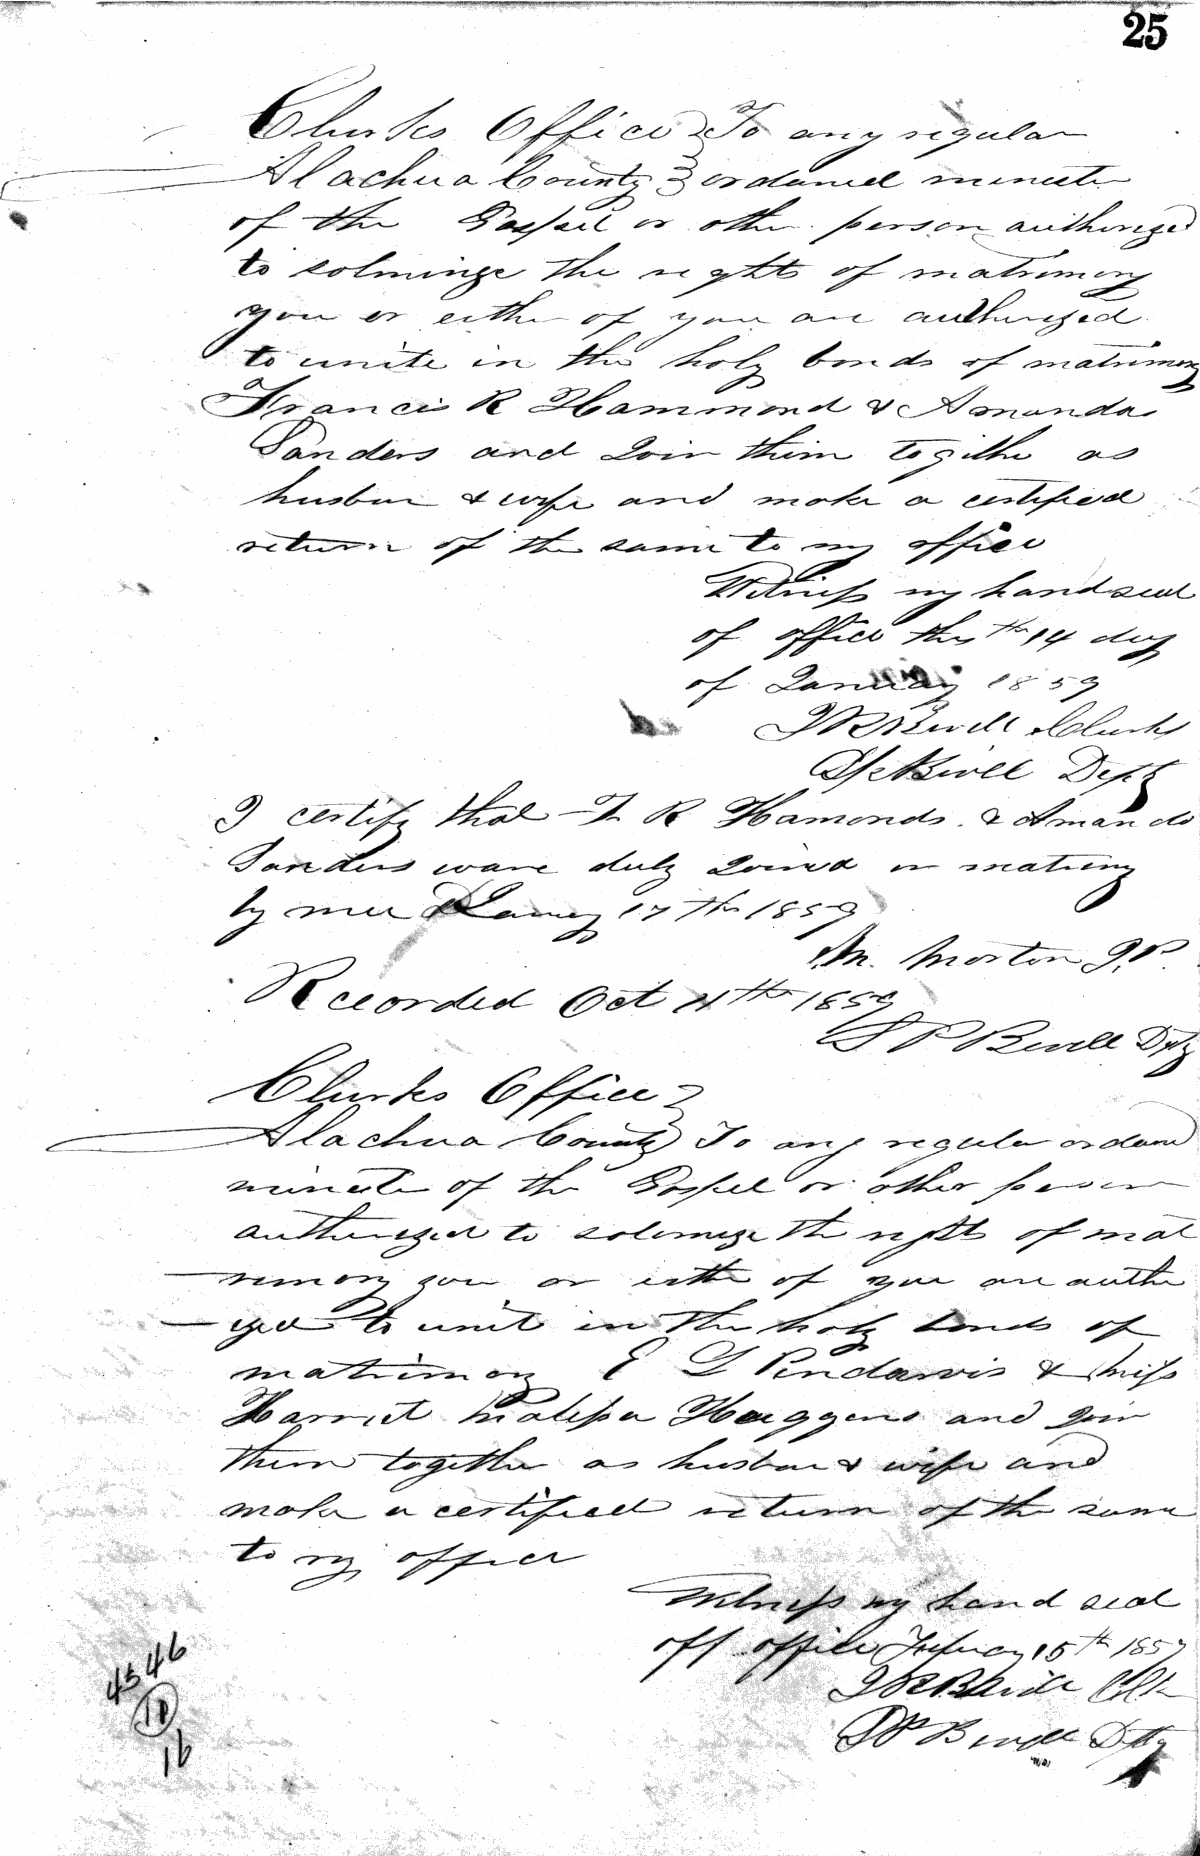 25
Clurks Office } To any regular
Alachua County } ordained minester
of the Gospel or other person authorized
to solminize the rights of matrimony
you or either of you are authorized
to unite in the holy bonds of matrimony
Francis R Hammond & Amanda
Sanders and Join them togithe as
husban & wife and make a certified
return of the same to my office
Witness my hand seal
of office this th 14 day
of January 1859
J R Bevill Clurk
S P Bevill Depty
I certify that F R Hamonds & Amanda
Sanders ware duly Joined in
by mee 17th 1859
M. Morton J.P.
Recorded Oct 11th 1859
S P Bevill Dpty
Clurks Office }
Alachua County } To any regular ordand
minester of the Gospel or other person
authorized to solemize the rights of mat
rimony you or eithe of you are autho
ized to unit in the holy bonds of
matrimony E L Pendarvis & Miss
Harriet Huggens and Join
them together as husban & wife and
make a certified return of the same
to my office
Witness my hand seal
off office 15th 1859
J R Bevill Clk
S P Bevill Dpty
45 46
10
16